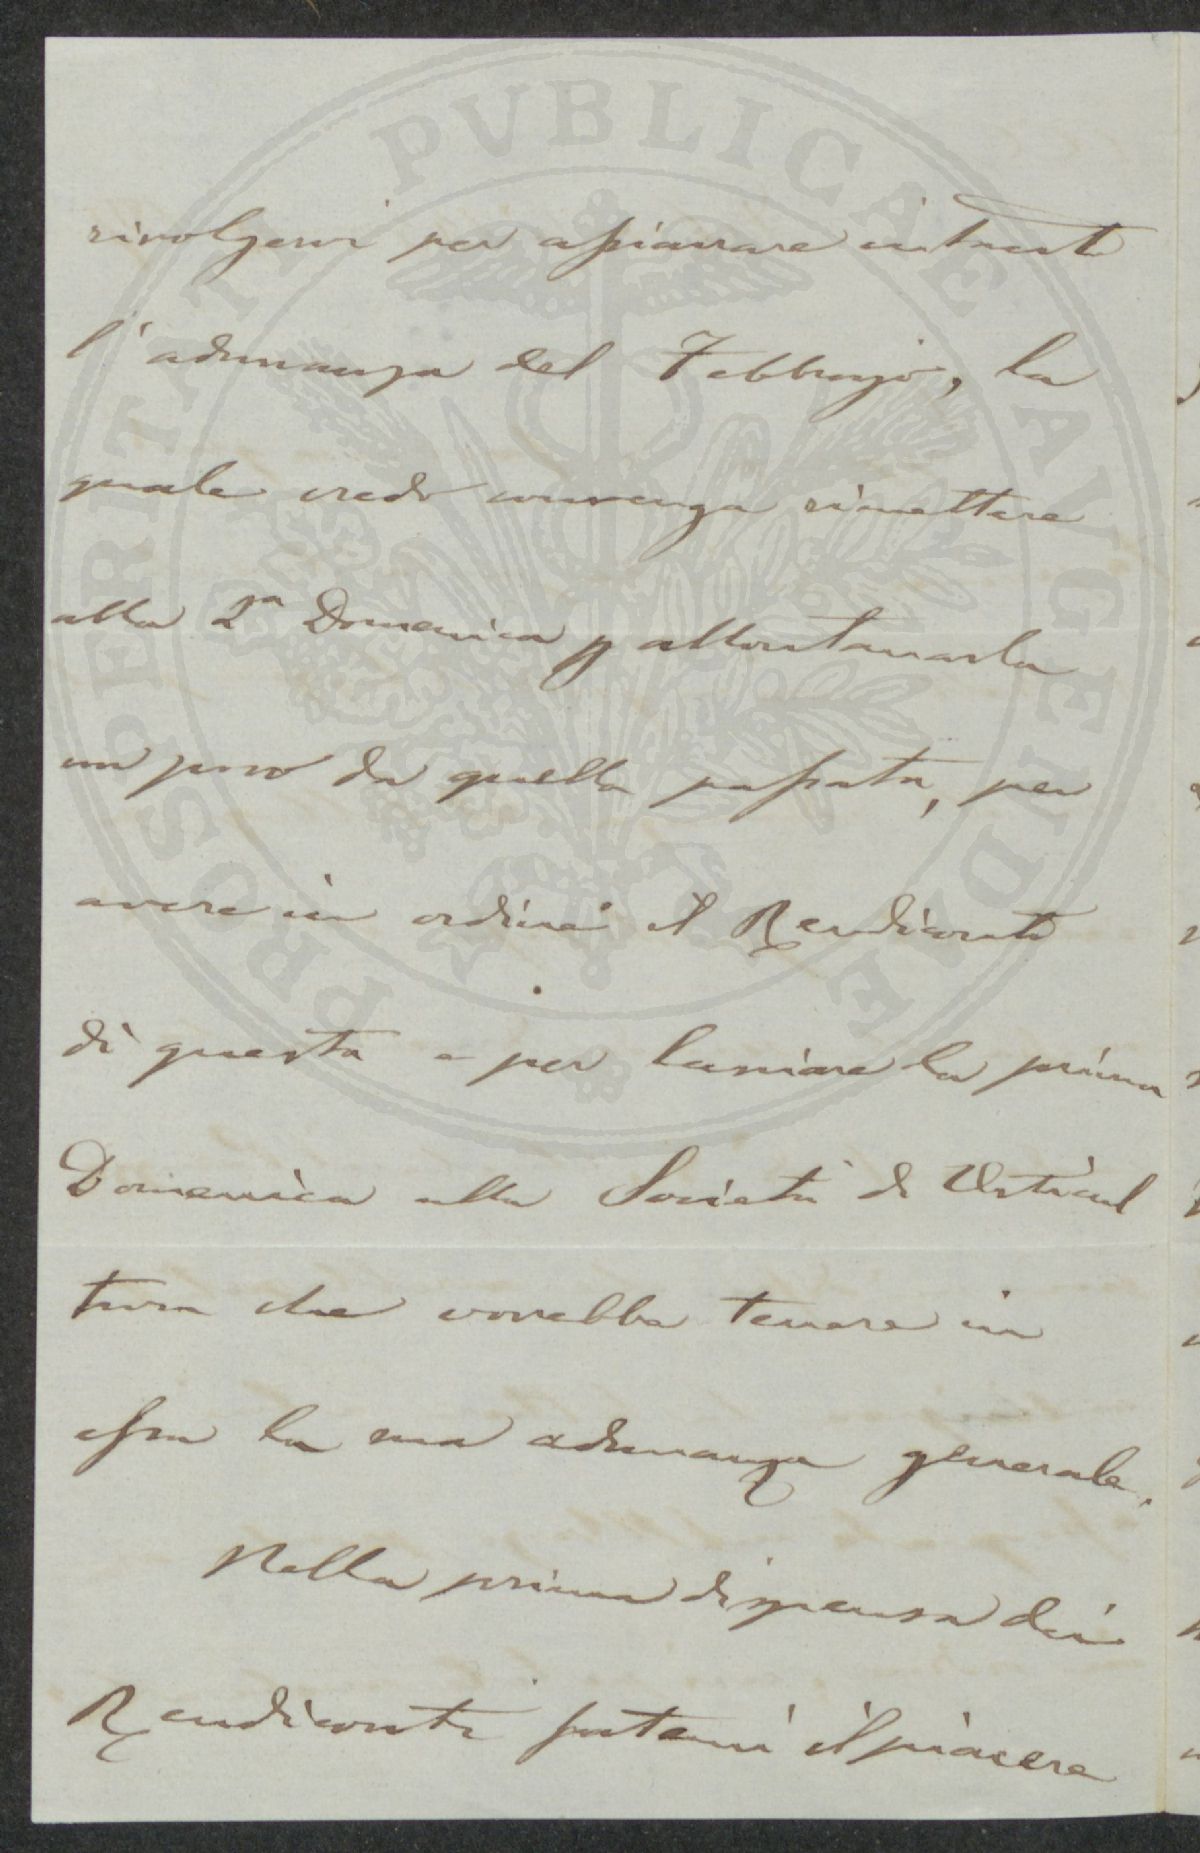 rivolgervi per appianare
l'adunanza del Febbrajo, la
quale credo convenga rimettere
alla 2ª Domenica p allontanarla
un poco da quella passata, per
avere in ordine il Rendiconto
di questa e per lasciare la prima
Domenica alla Società di Orticul
tura che vorrebbe tenere in
essa la sua adunanza generale.
Nella prima dispensa dei
Rendiconti fatemi il piacere
PROSPERITATI PVBLICAE AVGENDAE